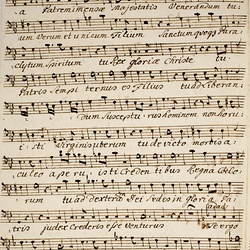 a Patrem immensæ Majestatis Venerandum tu-
um Verum et unicum Filium Sanctum quoq Para-
clytum Spiritum tu Rex gloriæ Christe tu
Patris sempiternus es Filius tu ad liberan-
dum Suscepturus hominem non horru-
isti Virginis uterum tu devicto mortis a
culeo aperuisti Credentibus Regna Cælo-
rum tu ad dexteram Dei Sedes in gloria Pa-
tris judex Crederis esse venturus